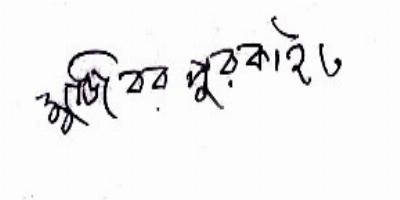 মুজিবর পুরকাইত